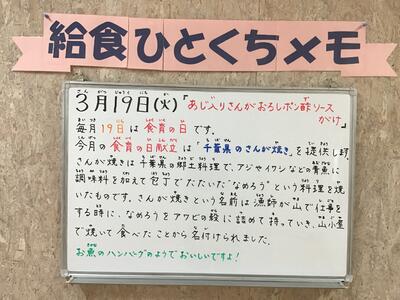 給食ひとくちメモ
3月19日(火)「あじ入りさんがおろしポン酢ソース
がけ」
毎月19日は食育の日です。
今月の食育の日献立は「千葉県のさんが焼き」を提供します。
さんが焼きは千葉県の郷土料理で、アジやイワシなどの青魚に
調味料を加えて包丁でたたいた"なめろう"という料理を焼い
たものです。さんが焼きという名前は漁師が山で仕事を
する時に、なめろうをアワビの殻に詰めて持っていき、山小屋
で焼いて食べたことから名付けられました。
お魚のハンバーグのようでおいしいですよ!